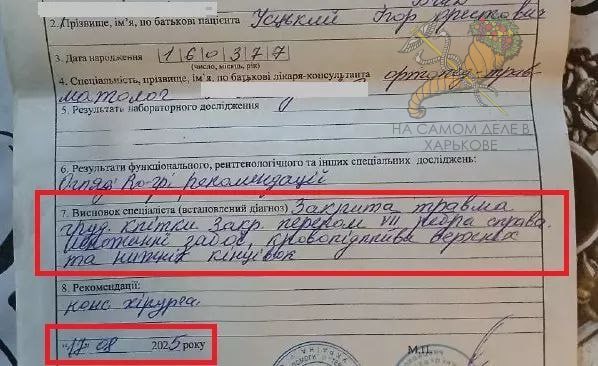 2. Прізвище, ім'я, по батькові пацієнта Усцкий Ігор Орестович
3. Дата народження 160377
(число, місяць, рік)
4. Спеціальність, прізвище, ім'я, по батькові лікаря-консультанта ортопед-трав
матолог
5. Результати лабораторного дослідження
НА САМОМ ДЕЛЕ В
ХАРЬКОВЕ
6. Результати функціонального, рентгенологічного та інших спеціальних досліджень:
Огляд рекомендацій
7. Висновок спеціаліста (встановлений діагноз) Закрита травма
груд. клітки Закр. перелом VII ребра справа.
забоє, кровопідпливи верхніх
та нижніх кінцівок
8. Рекомендації:
конс хірурга.
"17" 08 2025 року М.П.